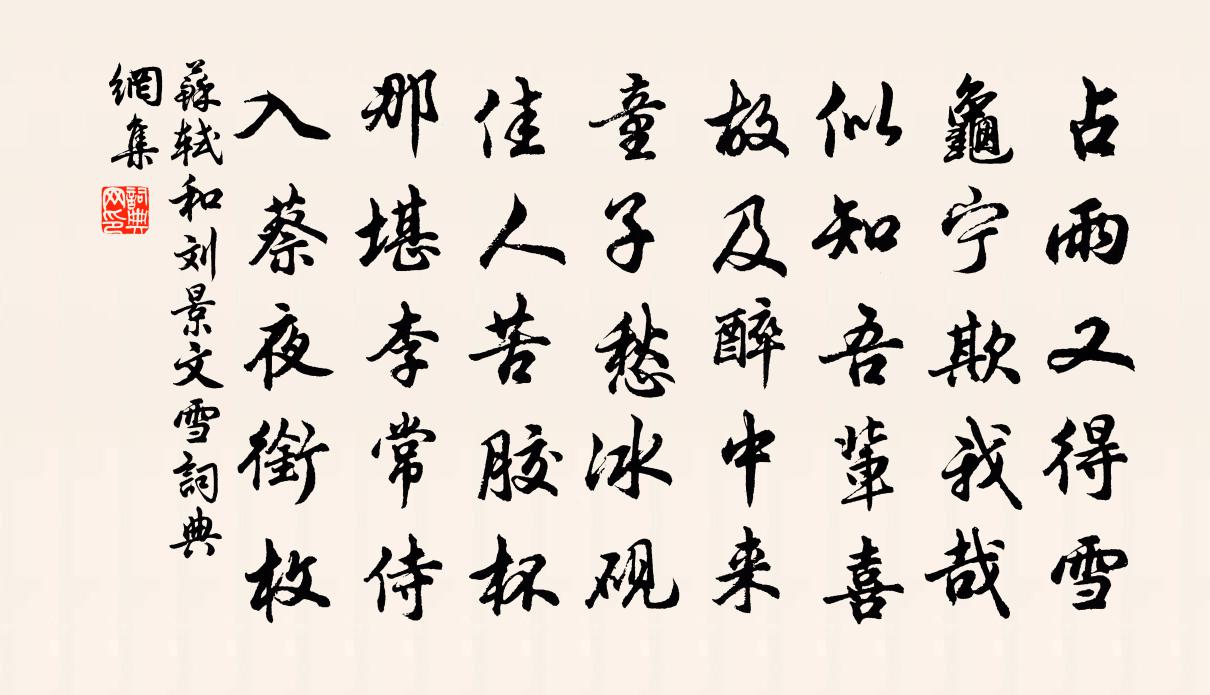 占雨又得雪
龜宁欺我哉
似知吾輩喜
故及醉中来
童子愁冰硯
佳人苦膠杯
那堪李常侍
入蔡夜銜枚
蘇軾和刘景文雪詞典
網集
詞典
网印